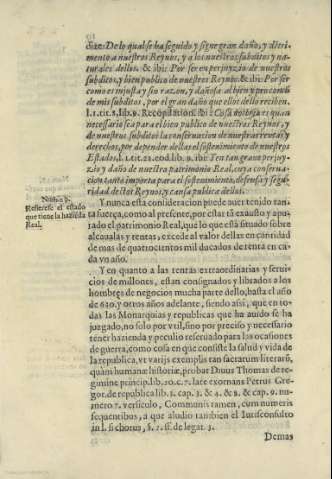 dize: De lo qual se ha seguido y sigue gran daño, y detri-
mento a nuestros Reynos, y a los nuestros subditos y na-
turales dellos. & ibi: Por ser en perjuyzio de nuestros
subditos, y bien publico de nuestros Reynos. & ibi: Por ser
como es injusta y sin razon, y dañosa al bien y pro comũ
de mis subditos, por el gran daño que ellos dello reciben.
l. 1. tit. lib. 9. Recopilation. ibi: Cosa notoria es quan
necessario sea para el bien publico de nuestros Reynos, y
de nuestros subditos la conseruacion de nuestras rentas y
derechos, por depender dellas el sostenimiento de nuestros
Estados, l. 1. tit. 21. eod. lib. 9. ibi: En tan gran perjuy-
zio y daño de nuestro patrimonio Real, cuya conserua-
cion tanto importa para el sostenimiento, defensa y segu-
ridad destos Reynos, y causa publica dellos.
Num. 9.
Refierese el estado
que tiene la hazienda
Real.
Y nunca esta consideracion puede auer tenido tan-
ta fuerça, como al presente, por estar tã exausto y apu-
rado el patrimonio Real, que lo que está situado sobre
alcaualas y rentas, excede al valor dellas en cantidad
de mas de quatrocientos mil ducados de renta en ca-
da vn año.
Y en quanto a las rentas extraordinarias y serui-
cios de millones, estan consignados y librados a los
hombres de negocios mucha parte dello, hasta el año
de 620. y otros años adelante, siendo assi, que en to-
das las Monarquias y republicas que ha auido se ha
juzgado, no solo por vtil, sino por preciso y necessario
tener hazienda y peculio reseruado para las ocasiones
de guerra, como cosa en que consiste la salud y vida de
la republica, vt varijs exemplis tan sacrarum literarũ,
quàm humanæ historiæ, probat Diuus Thomas de re-
gimine princip. lib. 2. c. 7. late exornans Petrus Gre-
gor. de republica lib. 3. cap. 3. & 4. & 8. cap. 9. nu-
mero 7. versiculo, Communis tamen, cum numeris
sequentibus, a que aludio tambien el Iurisconsulto
in l. si chorus, §. 1. ff. de legat. 3.
Demas